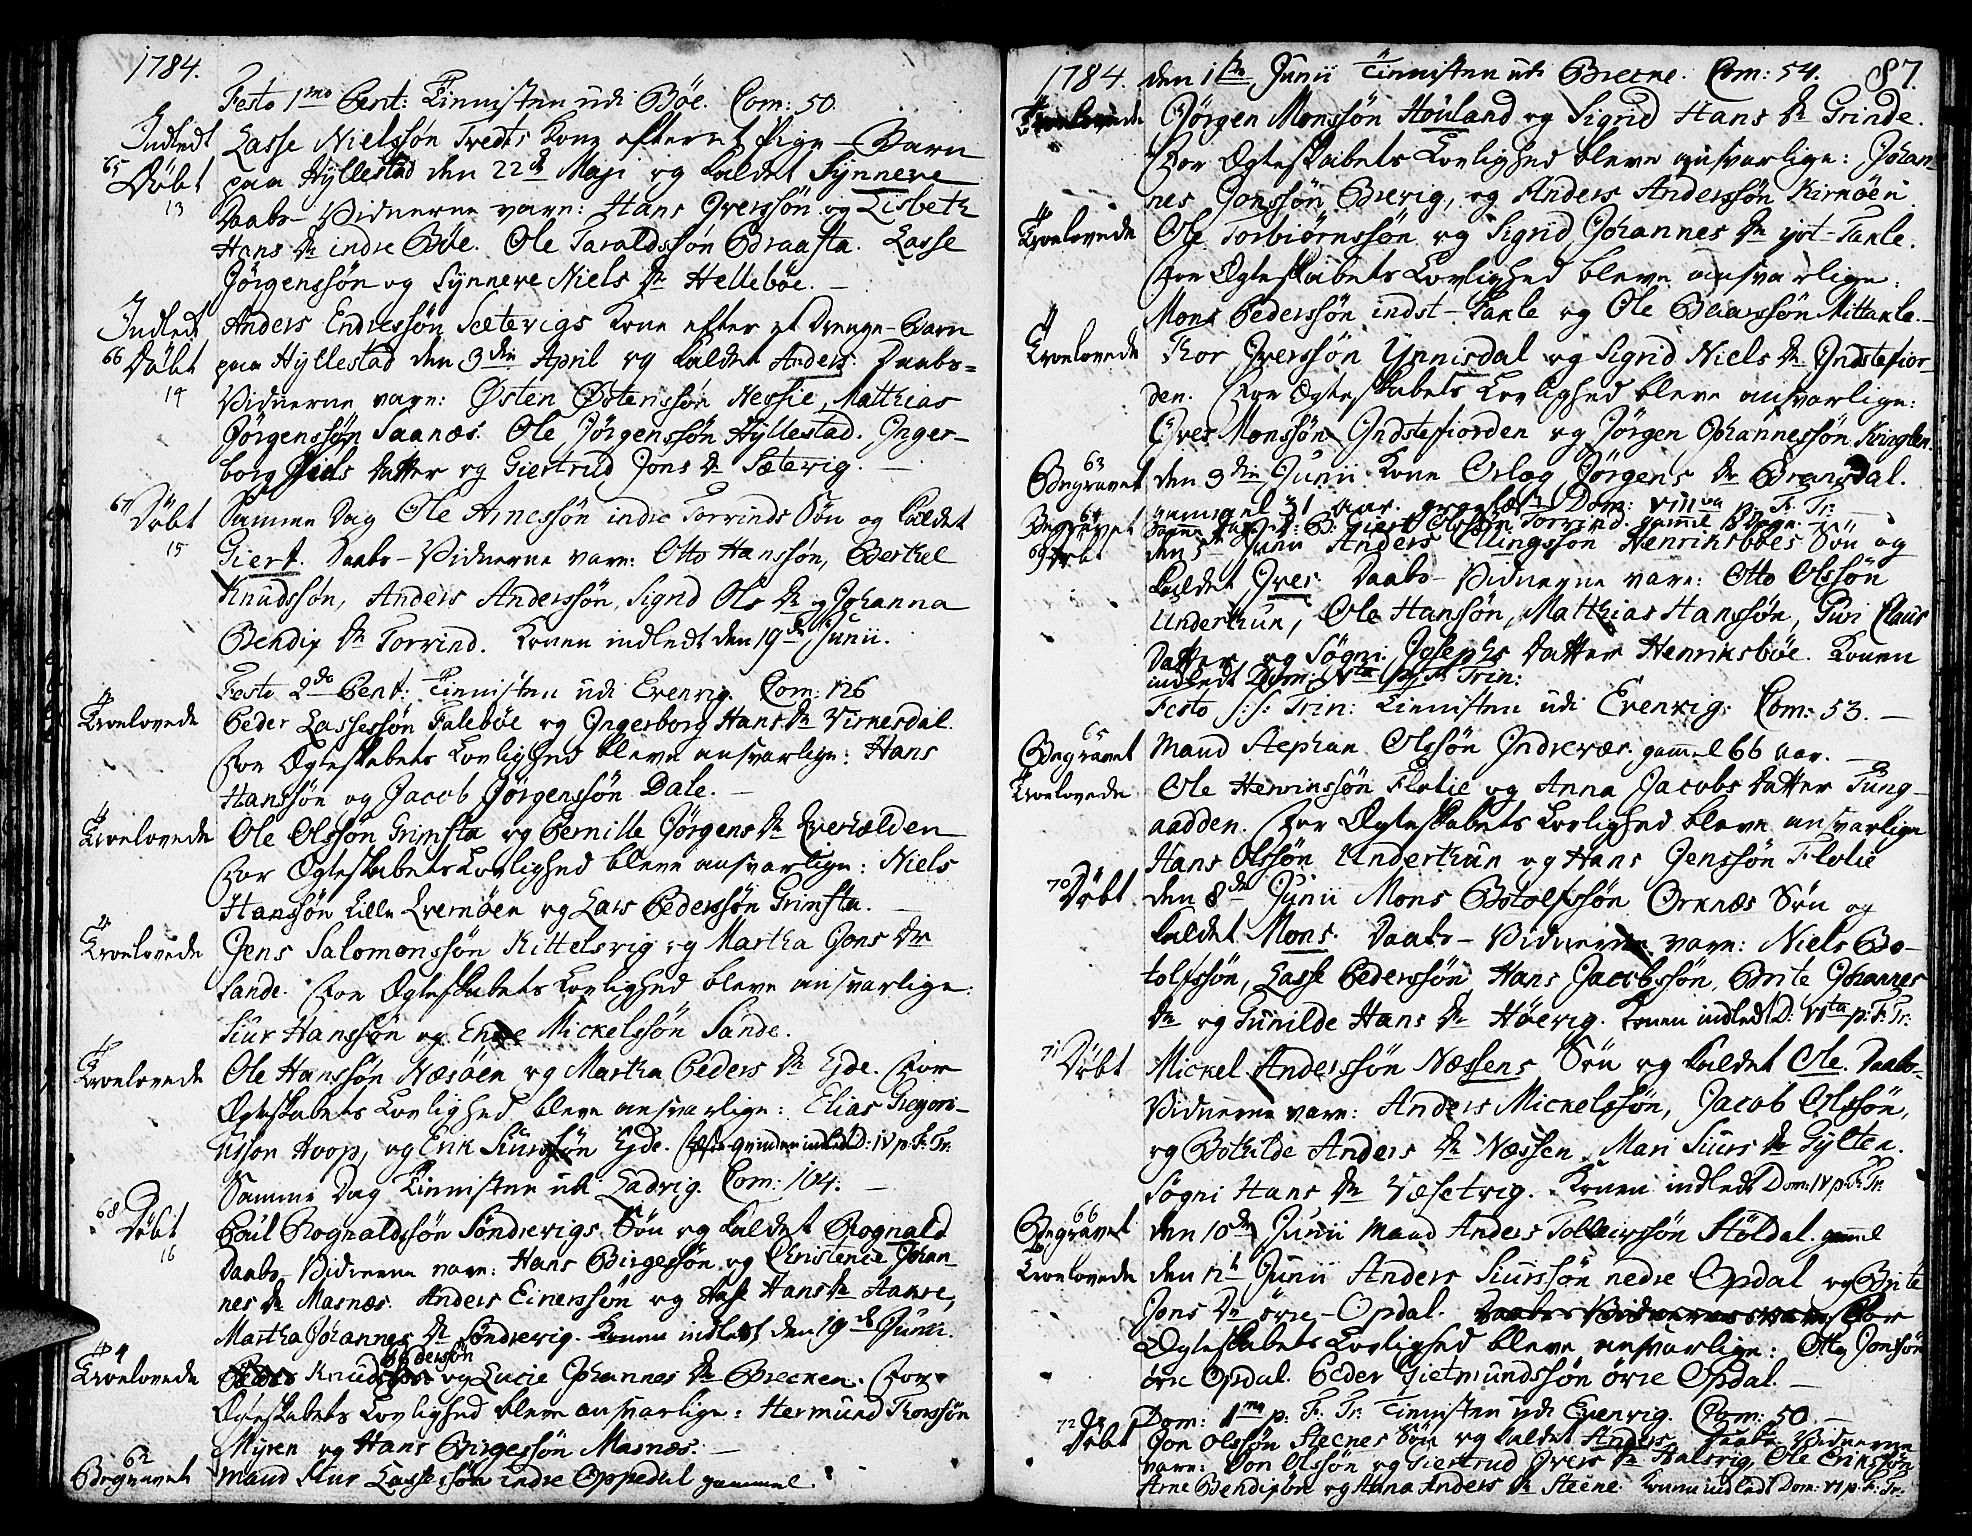 1784.
Festo 1mo Pent: Tienisten udi Böe. Com: 50.
Indledt Lasse Nielssön Tredts Kone efter et Pige-Barn
65 Döbt paa Hyllestad den 22de Maji og kaldet Synneve
13 Daabs-Vidnerne vare: Hans Iverssön og Lisbeth
Hans Dr indre Böe. Ole Taraldssön Braasta. Lasse
Jörgenssön og Synneve Niels Dr Helleböe.
Indledt Anders Endressön Sætevigs Kone efter et Drenge-Barn
66 Döbt paa Hyllestad den 3die April og kaldet Anders. Daabs-
14 Vidnerne vare: Østen Østenssön Hessie, Matthias
Jörgenssön Saanæs. Ole Jörgenssön Hyllestad. Inger-
borg Datter og Giertrud Jons Dr Sætevig.
67 Döbt Samme Dag Ole Arnessön indre Torvinds Sön og kaldet
15 Giert. Daabs-Vidnerne vare: Otto Hanssön, Berthel
Knudssön, Anders Anderssön, Sigrid Ols Dr og Johanna
Bendix Dr Torvind. Konen indledt den 19de Junii.
Festo 2do Pent: Tienisten udi Evenvig. Com: 126
Troelovede Peder Lassessön Faleböe og Ingerborg Hans Dr Virkesdal.
For Ægteskabets Lovlighed bleve ansvarlige: Hans
Hanssön og Jacob Jörgenssön Dale.
Troelovede Ole Olssön Grimsta og Pernille Jörgens Dr Qverhælden
For Ægteskabets Lovlighed bleve ansvarlige: Niels
Hanssön Lille Qvernöen og Lars Pederssön Grimsta.
Troelovede Jens Salomonssön Kittelsvig og Martha Jons Dr
Sande. For Ægteskabets Lovlighed bleve ansvarlige:
Siur Hanssön og Mickelssön Sande.
Troelovede Ole Hanssön Næsöen og Martha Peders Dr Ejde. For
Ægteskabets Lovlighed bleve ansvarlige: Elias Gregori-
usson Hoop, og Erik Siurssön Ejde. qvinden indledt D: IV p: F. Tr.
Samme Dag Tienisten udi Ladvig. Com: 104.
68 Döbt Poul Rognaldssön Söndrevigs Sön og kaldet Rognald
16 Daabs-Vidnerne vare: Hans Birgessön og Christence Johan-
nes Dr Masnæs. Anders Einerssön og Aase Hans Dr Hanse,
Martha Johannes Dr Söndrevig. Konen indledt den 19de Junii.
Pederssön
Troelovede Knud og Lucie Johannes Dr Brecken. For
Ægteskabets Lovlighed bleve ansvarlige: Hermund Thorssön
Myren og Hans Birgessön Masnæs.
62 Begravet Mand Siur Lassessön indre Oppedal gammel

1784. den 1ste Junii Tienisten udi Brecke. Com: 54. 87.
Troelovede Jörgen Monssön Houland og Sigrid Hans Dr Grinde.
For Ægteskabets Lovlighed bleve ansvarlige: Johan-
nes Jonssön Brevig, og Anders Anderssön Kirnöen.
Troelovede Ole Torbiörnssön og Sigrid Johannes Dr yst-Takle.
For Ægteskabets Lovlighed bleve ansvarlige:
Mons Pederssön indst-Takle og Ole Baarssön Mittakle.
Troelovede Thor Iverssön Ynnisdal og Sigrid Niels Dr Indstefior-
den. For Ægteskabets Lovlighed bleve ansvarlige:
Iver Monssön Indstefiorden og Jörgen Johannessön
63 Begravet den 3die Junii Kone Orlog Jörgens Dr Brensdal.
gammel 31 aar. Dom: VIIIva p. F. Tr.
64 Begravet Samme Dag Giert Olssön Torvind gammel Dage.
69 Döbt den 5te Junii Anders Ellingssön Henriksböes Sön og
kaldet Iver. Daabs-Vidnerne vare: Otto Olssön
Underthun, Ole Hanssön, Matthias Hanssön, Guri Claus
Datter og Sögni Josephs Datter Henriksböe. Konen
indledt Dom: Vta p. F. Trin:
Festo S:S: Trin: Tienisten udi Evenvig: Com: 53.
65 Begravet Mand Stephan Olssön Indrevær gammel 66 aar.
Troelovede Ole Henrikssön Flolie og Anna Jacobs Datter Tung-
aadden. For Ægteskabets Lovlighed bleve ansvarlige
Hans Olssön Underthun og Hans Jenssön Flolie
70 Döbt den 8de Junii Mons Botolfssön Orknæs Sön og
kaldet Mons. Daabs-Vidnerne vare: Niels Bo-
tolfssön, Lasse Pederssön, Hans Jacobssön, Brite Johannes
Dr og Gunilde Hans Dr Höevig. Konen indledt D: VIta p: F: Tr:
71 Döbt Mickel Anderssön Næssens Sön og kaldet Ole. Daabs-
Vidnerne vare: Anders Mickelssön, Jacob Olssön,
og Bothilde Anders Dr Næssen, Mari Siurs Dr Gylten.
Sögni Hans Dr Væsetvig. Konen indledt Dom: IV p: F: Tr.
66 Begravet den 10de Junii Mand Anders Tolleivssön Stöldal. gammel
Troelovede den 12te Junii Anders Siurssön nedre Opdal og Brite
Jons Dr övre-Opdal. Daabs-Vidnerne vare For
Ægteskabets Lovlighed bleve ansvarlige: Otto Jonssön
övre Opdal. Peder Gietmundssön övre Opdal.
Dom: 1ma p: F: Tr: Tienisten udi Evenvig. Com: 50.
72 Döbt Jon Olssön Steenes Sön og kaldet Anders. Daabs-Vidnerne
vare: Jon Olssön og Giertrud Ivers Dr Halsvig, Ole Erikssön,
Arne Bendixsön og Anna Anders Dr Steene. Konen indledt Dom: VI p: F: Tr.